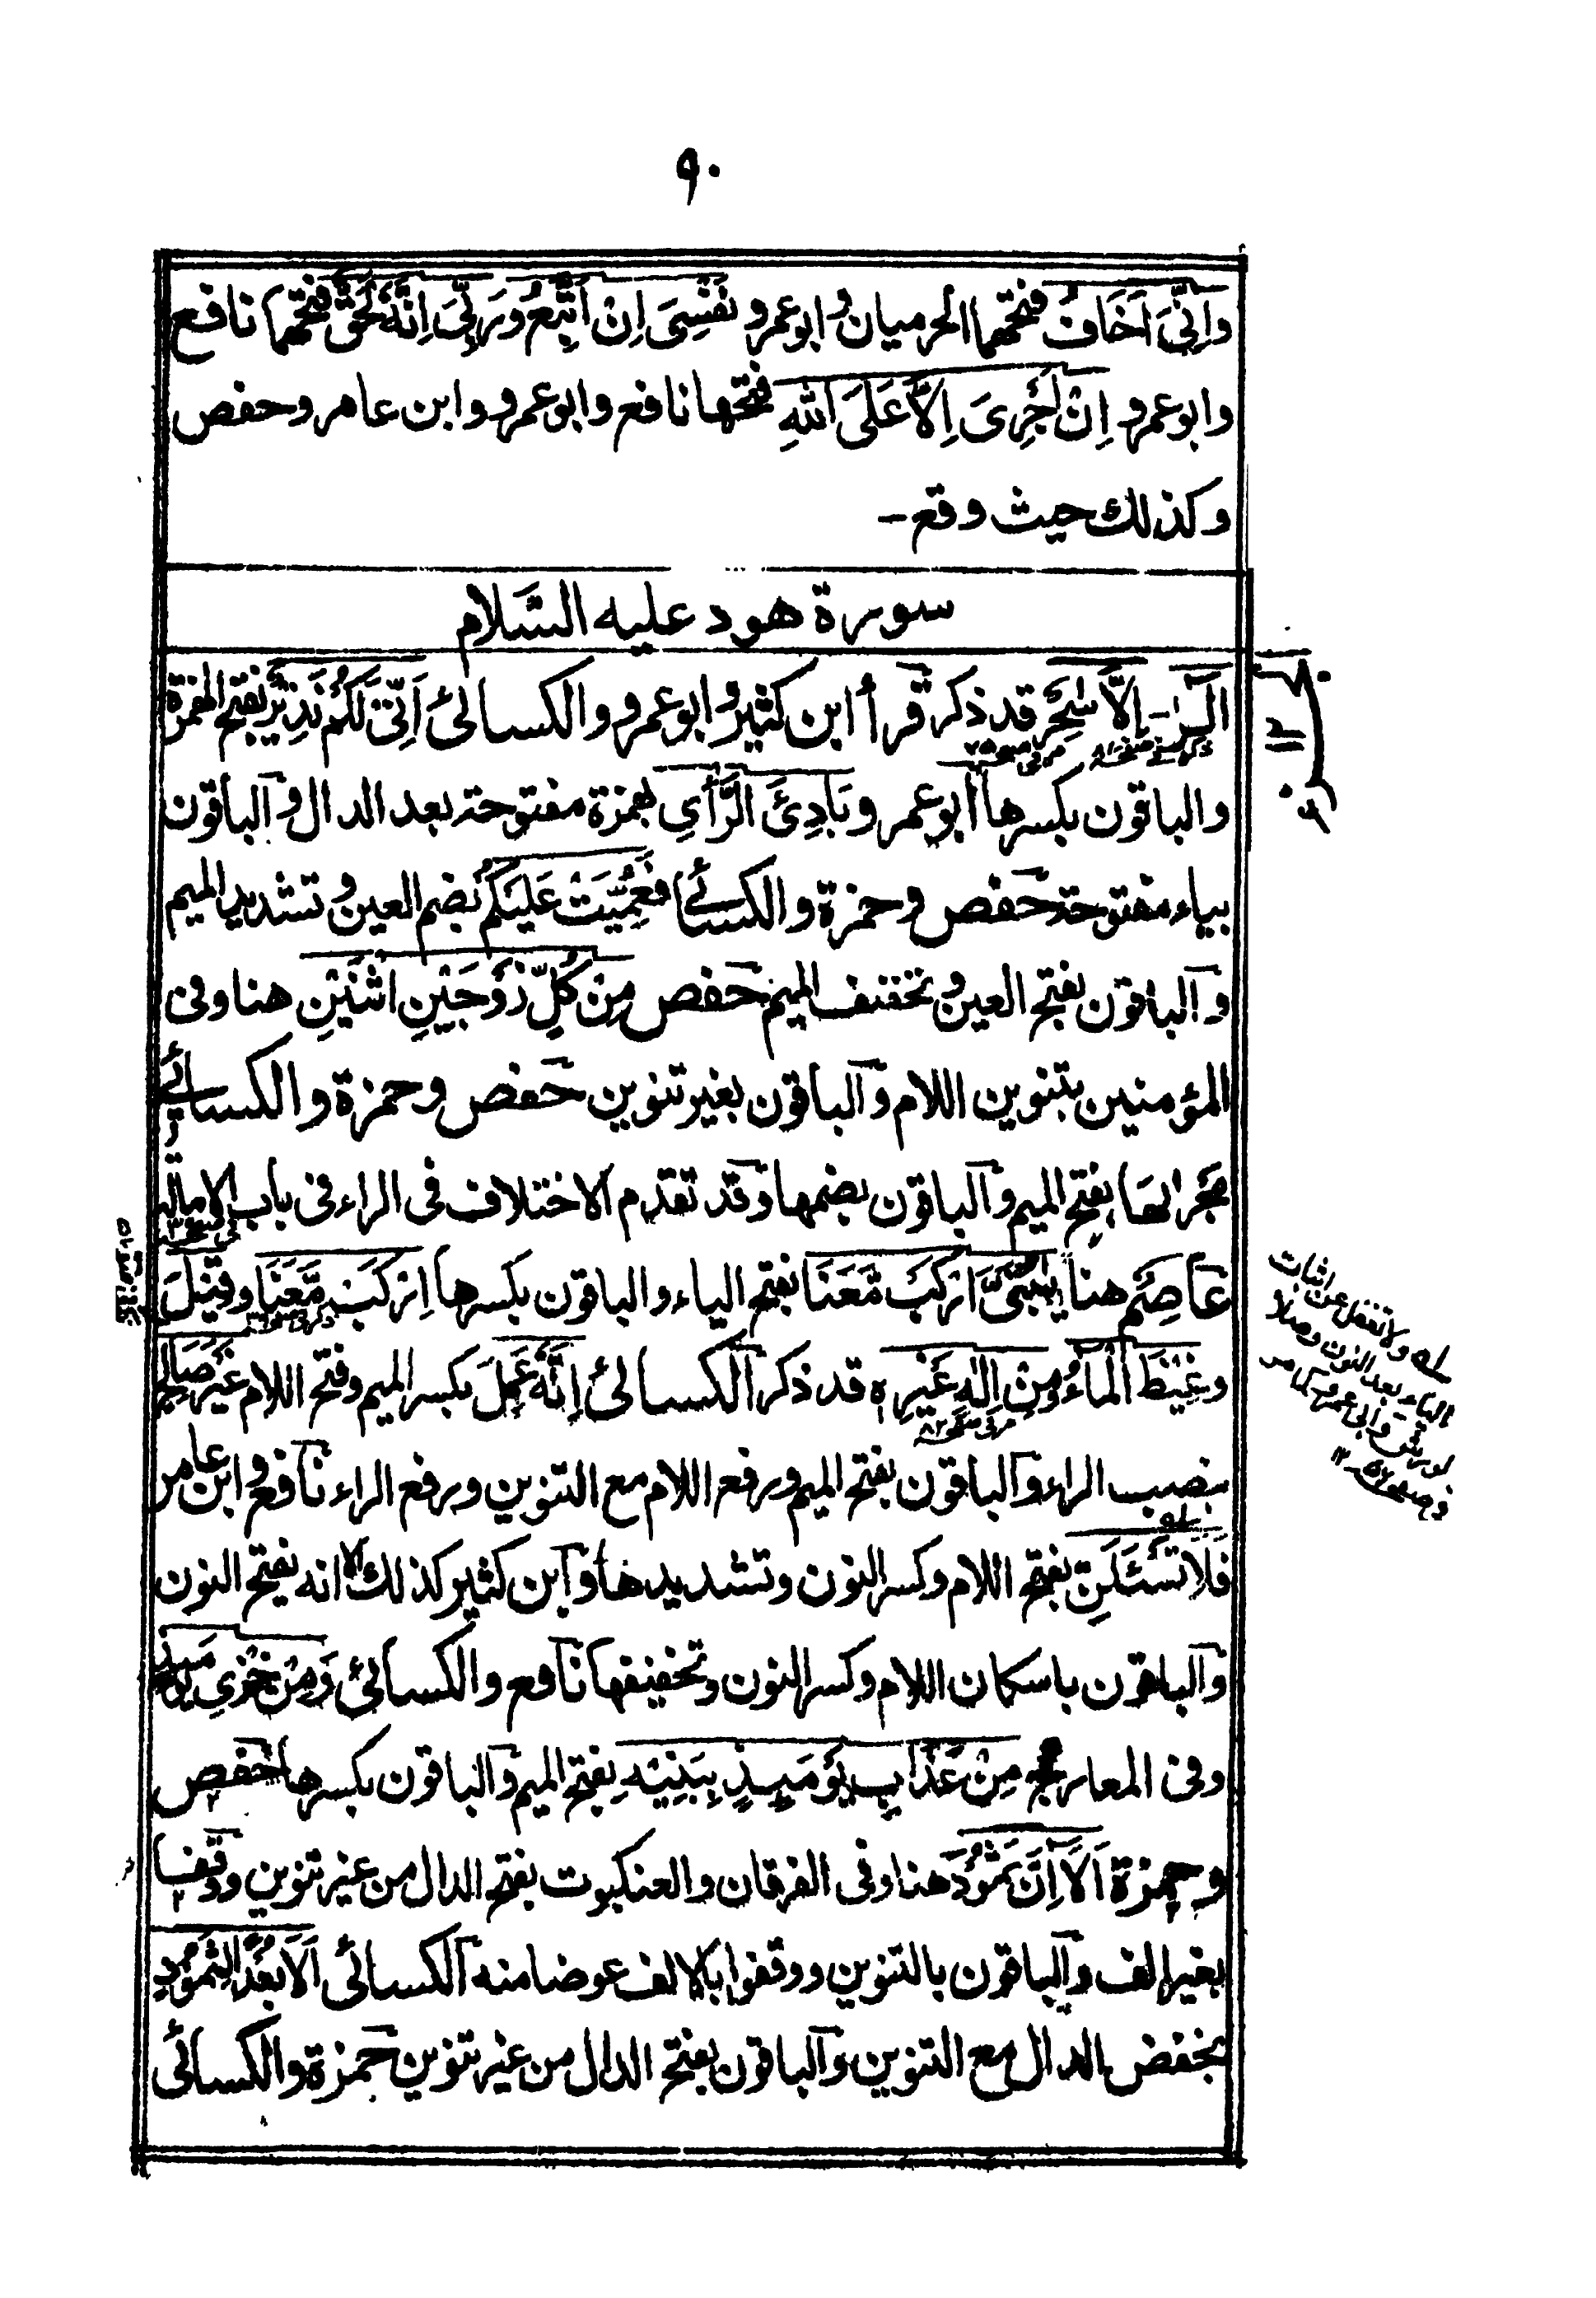 ٩٠
وَاِنِّیَ اَخَافُ فتحهما الحرمیان وابو عمرو نَفْسِیَ اِنْ اَتَّبِعُ وَرَبِّیَ اِنَّهٗ لَحَقٌّ فتحهما نافع
وابو عمرو اِنْ اَجْرِیَ اِلَّا عَلَی اللهِ فتحها نافع وابو عمرو وابن عامر وحفص
وکذلك حیث وقع ۔
سورة هود علیه السّلام
الٓرٰ ۔ اِلَّا سٰحِرٌ قد ذکر قرأ ابن کثیر وابو عمرو والکسائی اَنِّیْ لَکُمْ نَذِیْرٌ بفتح الهمزة
والباقون بکسرها ابو عمرو بَادِئَ الرَّأْیِ بهمزة مفتوحة بعد الدال والباقون
بیاء مفتوحة حفص وحمزة والکسائے فَعُمِّیَتْ عَلَیْکُمْ بضم العین وتشدید المیم
والباقون بفتح العین وتخفیف المیم حفص مِنْ کُلٍّ زَوْجَیْنِ اثْنَیْنِ هنا وفی
المؤمنین بتنوین اللام والباقون بغیر تنوین حفص وحمزة والکسائے
مَجْرٖىهَا بفتح المیم والباقون بضمها وقد تقدم الاختلاف فی الراء فی باب الامالة
عَاصِم هنا یٰبُنَیَّ ارْکَبْ مَّعَنَا بفتح الیاء والباقون بکسرها اِرْکَبْ مَّعَنَا وقِیْلَ
وغِیْضَ الْمَآءُ ومِنْ اِلٰهٍ غَیْرِهٖ قد ذکر الکسائی اِنَّهٗ عَمِلَ بکسر المیم وفتح اللام غَیْرَ صَالِحٍ
بنصب الراء والباقون بفتح المیم ورفع اللام مع التنوین ورفع الراء نافع وابن عامر
فَلَا تَسْئَلَنِّ بفتح اللام وکسر النون وتشدیدها وابن کثیر کذلك الا انه یفتح النون
والباقون باسکان اللام وکسر النون وتخفیفها نافع والکسائی وَمِنْ خِزْیِ یَوْمَئِذٍ
وفی المعارج مِنْ عَذَابِ یَوْمَئِذٍ بِبَنِیْهِ بفتح المیم والباقون بکسرها حفص
وحمزة اَلَآ اِنَّ ثَمُوْدَ هنا وفی الفرقان والعنکبوت بفتح الدال من غیر تنوین ووقفا
بغیر الف والباقون بالتنوین ووقفوا بالالف عوضا منه الکسائی اَلَا بُعْدًا لِّثَمُوْدٍ
بخفض الدال مع التنوین والباقون بفتح الدال من غیر تنوین حمزة والکسائی
له ولا تغفل عن اثبات
الیاء بعد النون وصلا
لورش وابی عمرو کما مر